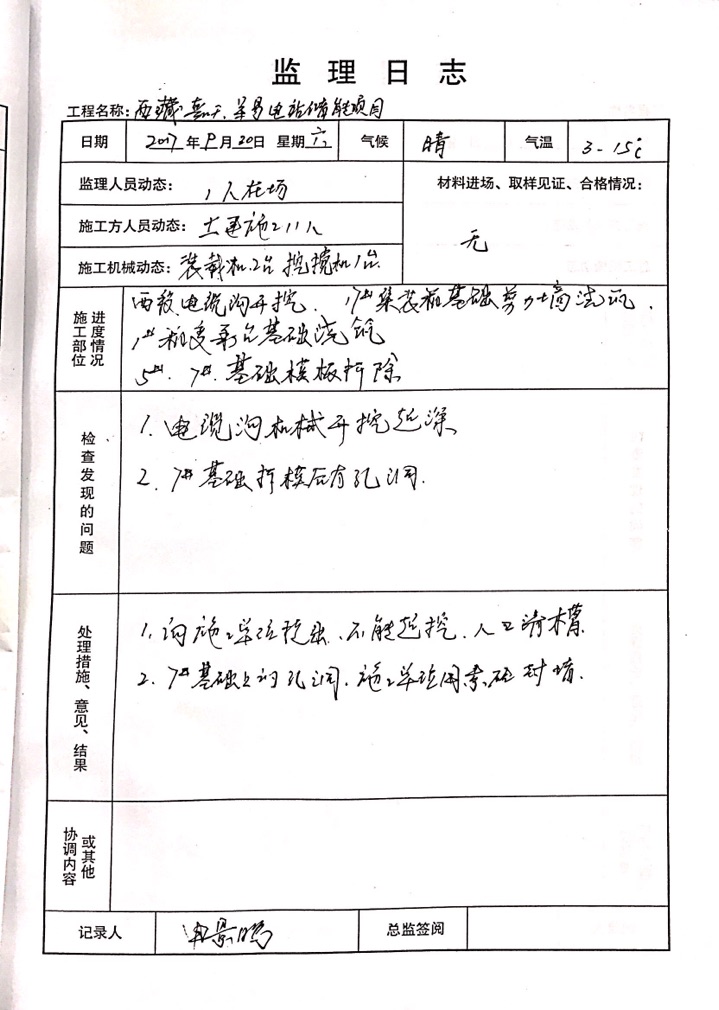 监理日志
工程名称：西藏 羊易电站储能项目
日期 2017年9月30日 星期六 气候 晴 气温 3-15℃
监理人员动态： 1人在场
材料进场、取样见证、合格情况：
施工方人员动态： 土建施工11人
无
施工机械动态： 装载机.2台 挖掘机1台.
进度情况
施工部位
电缆沟开挖. 7# 集装箱基础剪力墙浇筑.
1# 基础浇筑
5#. 7#. 基础模板拆除
检查发现的问题
1. 电缆沟机械开挖超深
2. 7#基础拆模后有孔洞.
处理措施、意见、结果
1. 向施工单位提出.不能超挖.人工清槽.
2. 7#基础上的孔洞.施工单位用素砼封堵.
或其他
协调内容
记录人 景鹏 总监签阅